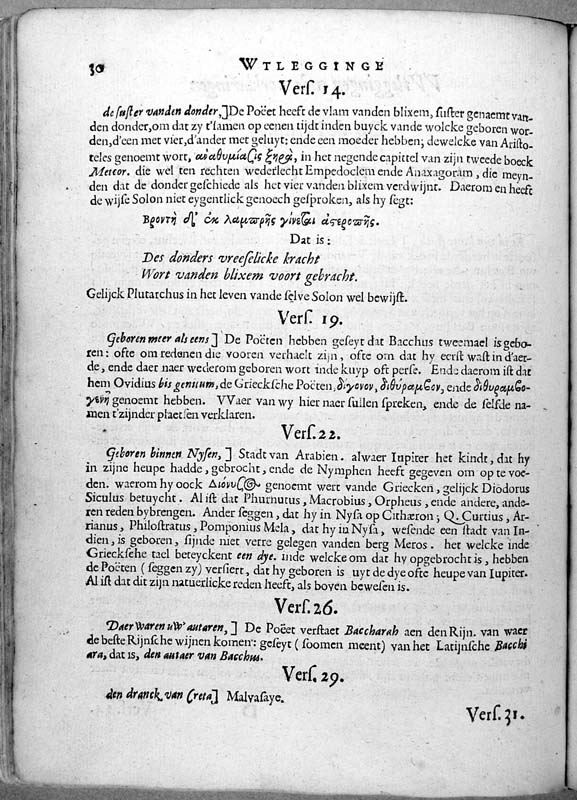 30 WTLEGGINGE
Vers. 14.
de suster vanden donder,] De Poëet heeft de vlam vanden blixem, suster genaemt van-
den donder, om dat zy t'samen op eenen tijdt inden buyck vande wolcke geboren wor-
den, d'een met vier, d'ander met geluyt: ende een moeder hebben; dewelcke van Aristo-
teles genoemt wort, ἀναθυμίασις ξηρὰ, in het negende capittel van zijn tweede boeck
Meteor. die wel ten rechten wederlecht Empedoclem ende Anaxagoram, die meyn-
den dat de donder geschiede als het vier vanden blixem verdwijnt. Daerom en heeft
de wijse Solon niet eygentlick genoech gesproken, als hy segt:
Βροντὴ δ' ἐκ λαμπρῆς γίνεται ἀστεροπῆς.
Dat is:
Des donders vreeselicke kracht
Wort vanden blixem voort gebracht.
Gelijck Plutarchus in het leven vande selve Solon wel bewijst.
Vers. 19.
Geboren meer als eens] De Poëten hebben geseyt dat Bacchus tweemael is gebo-
ren: ofte om redenen die vooren verhaelt zijn, ofte om dat hy eerst wast in d'aer-
de, ende daer naer wederom geboren wort inde kuyp oft perse. Ende daerom ist dat
hem Ovidius bis genitum, de Griecksche Poëten, δίγονον, διθύραμβον, ende διθυραμβο-
γενῆ genoemt hebben. VVaer van wy hier naer sullen spreken, ende de selfde na-
men t'zijnder plaetsen verklaren.
Vers. 22.
Geboren binnen Nysen,] Stadt van Arabien. alwaer Iupiter het kindt, dat hy
in zijne heupe hadde, gebrocht, ende de Nymphen heeft gegeven om op te voe-
den. waerom hy oock Διόνυσος genoemt wert vande Griecken, gelijck Diodorus
Siculus betuycht. Al ist dat Phurnutus, Macrobius, Orpheus, ende andere, ande-
ren reden bybrengen. Ander seggen, dat hy in Nysa op Cithæron; Q. Curtius, Ar-
rianus, Philostratus, Pomponius Mela, dat hy in Nysa, wesende een stadt van In-
dien, is geboren, sijnde niet verre gelegen vanden berg Meros. het welcke inde
Griecksche tael beteyckent een dye. inde welcke om dat hy opgebrocht is, hebben
de Poëten (seggen zy) versiert, dat hy geboren is uyt de dye ofte heupe van Iupiter.
Al ist dat dit zijn natuerlicke reden heeft, als boven bewesen is.
Vers. 26.
Daer waren uw' autaren,] De Poëet verstaet Baccharah aen den Rijn. van waer
de beste Rijnsche wijnen komen: geseyt (soomen meent) van het Latijnsche Bacchi
ara, dat is, den autaer van Bacchus.
Vers. 29.
den dranck van Creta] Malvasaye.
Vers. 31.